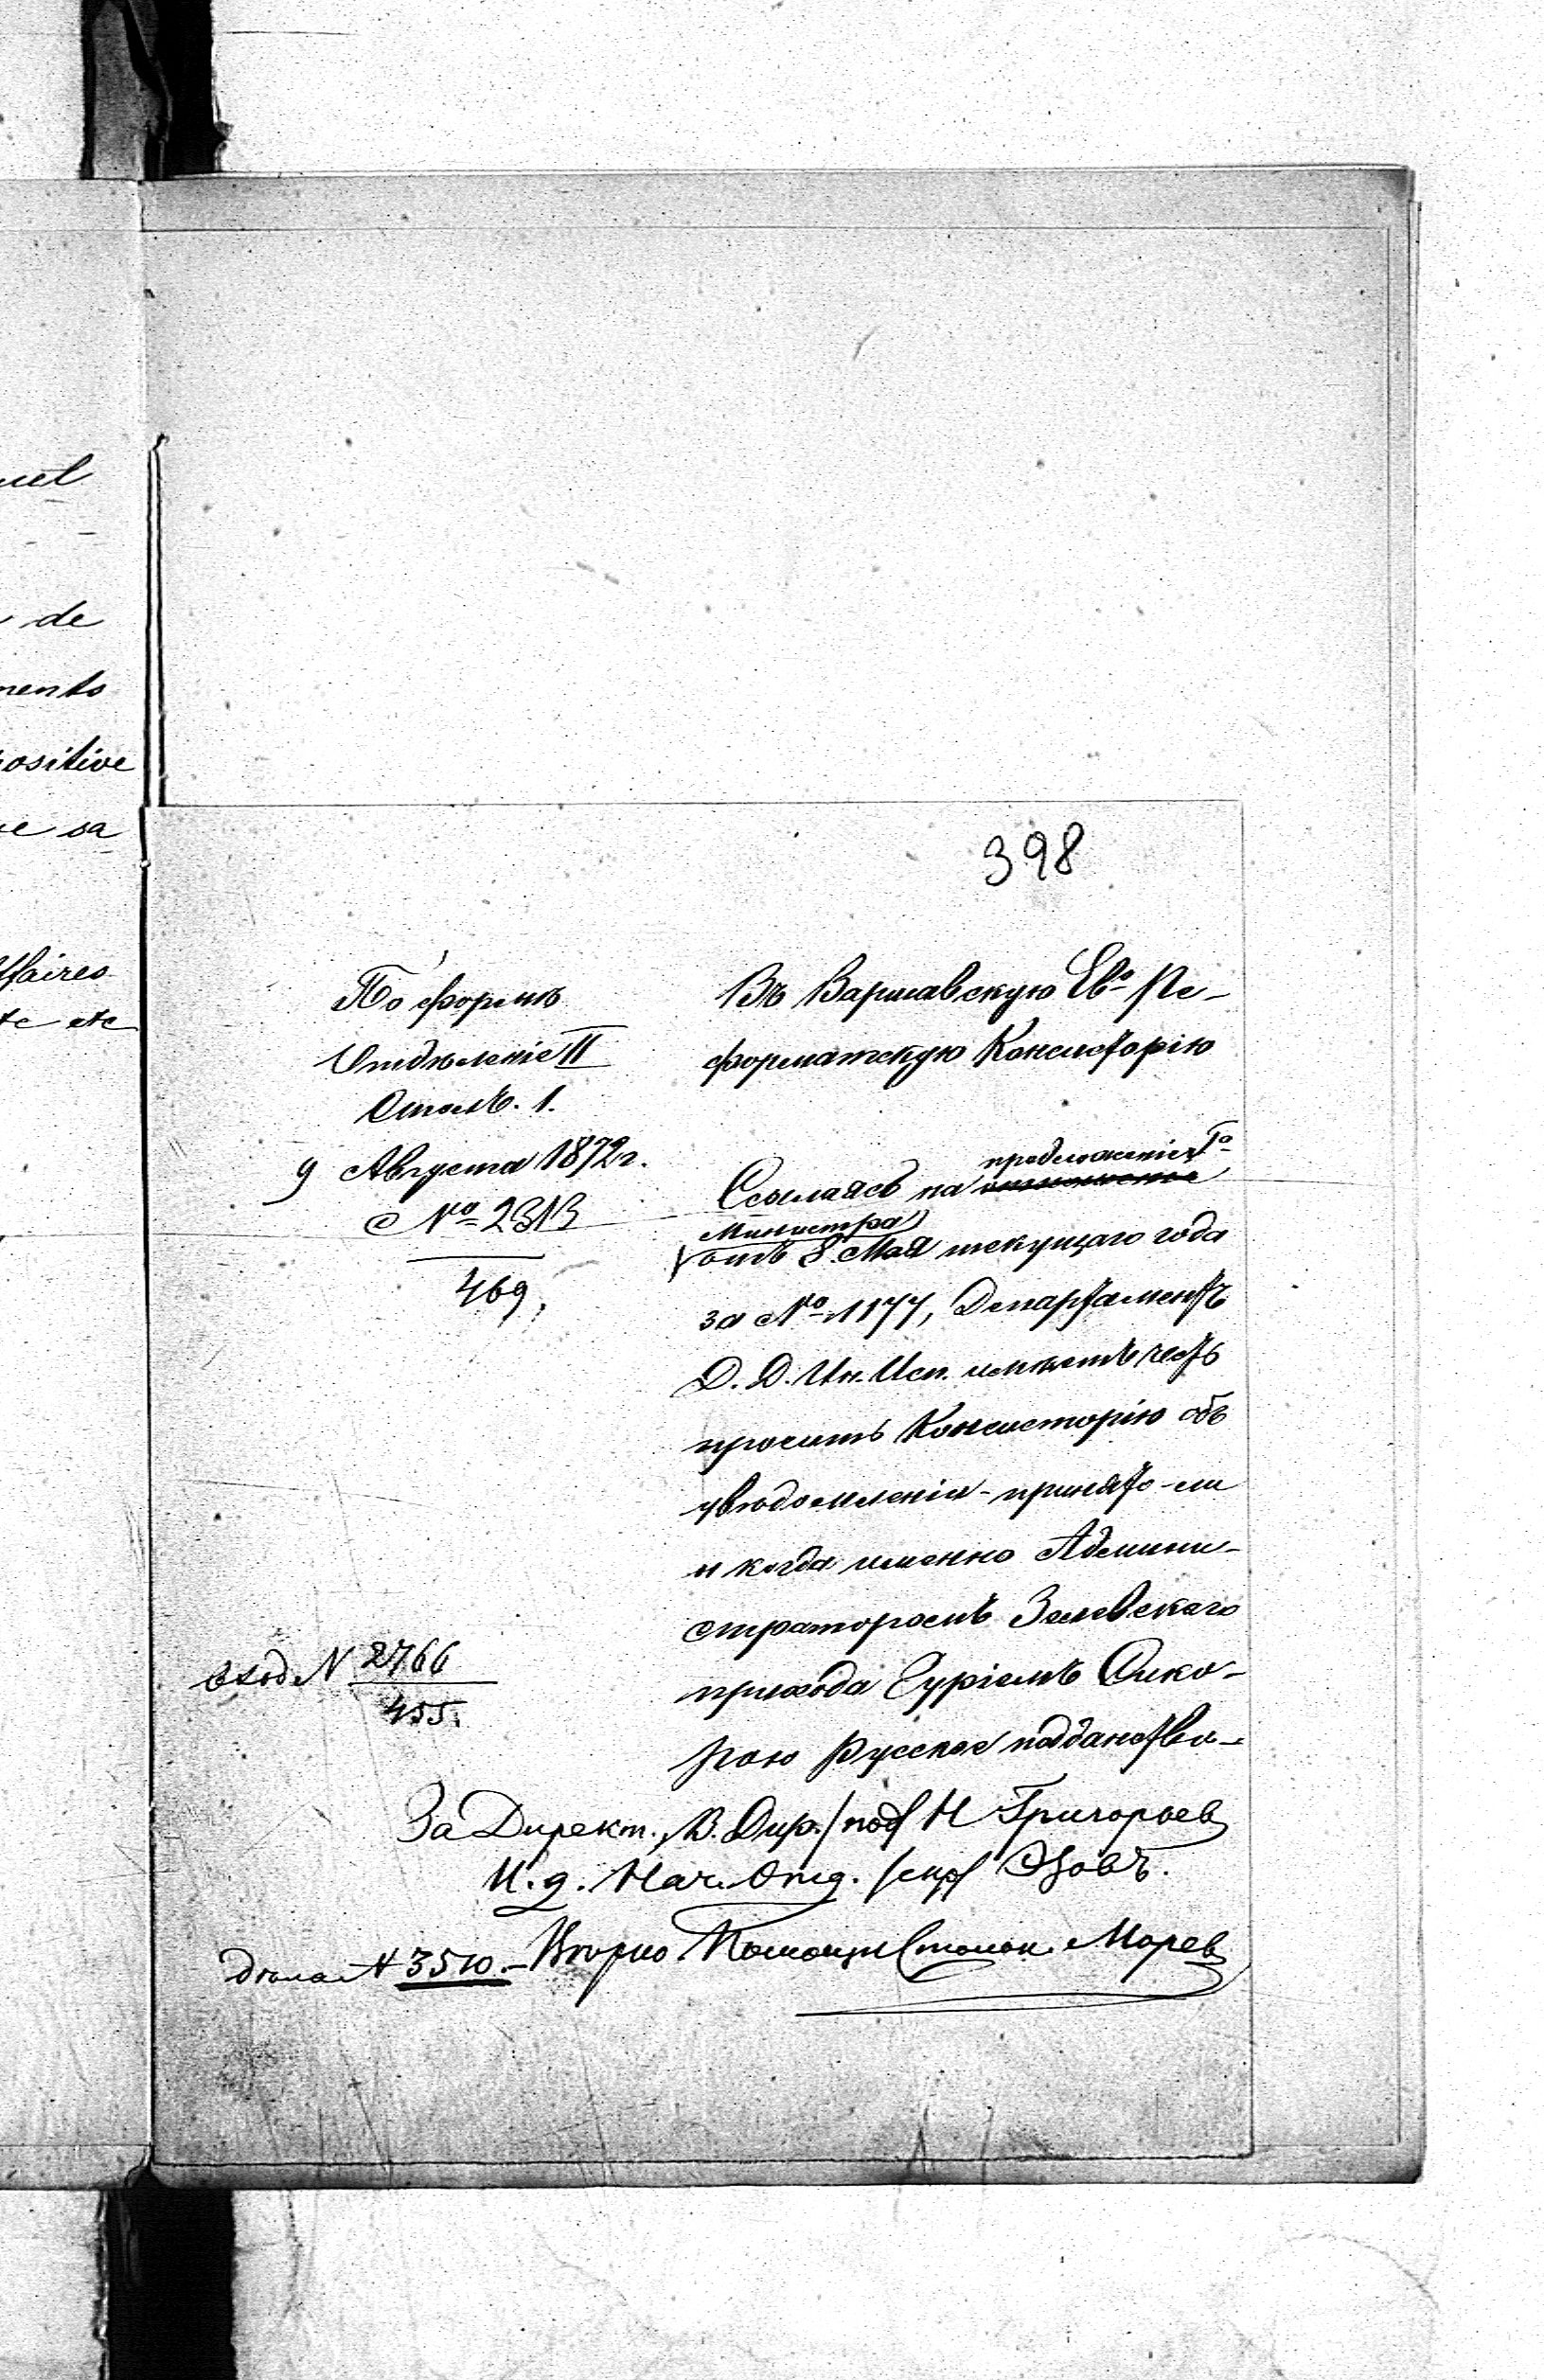 uel
de
ments
positive
e sa
ffaires
etc
398
По формѣ
Отдѣленіе II
Столъ. 1.
9 Августа 1872 г.
№ 2313
469.
Въ Варшавскую Ев.о Ре-
форматскую Консисторію
предложеніе Г-а
Ссылаясь на отношеніе
Министра
отъ 8 Мая текущаго года
за № 1177, Департаментъ
Д. Д. Ин. Исп. имѣетъ честь
просить Консисторію объ
увѣдомленіи - принято-ли
и когда именно Админи-
страторомъ Зеловскаго
прихода Гуріемъ Сико-
рою Русское подданство-
вход. N 2766
455.
За Директ., В. Дир. /под/ Н Григорьев
И. д. Нач. Отд. /скр/
Вѣрно Помощн Столон. Морев
дѣла N 3510.-